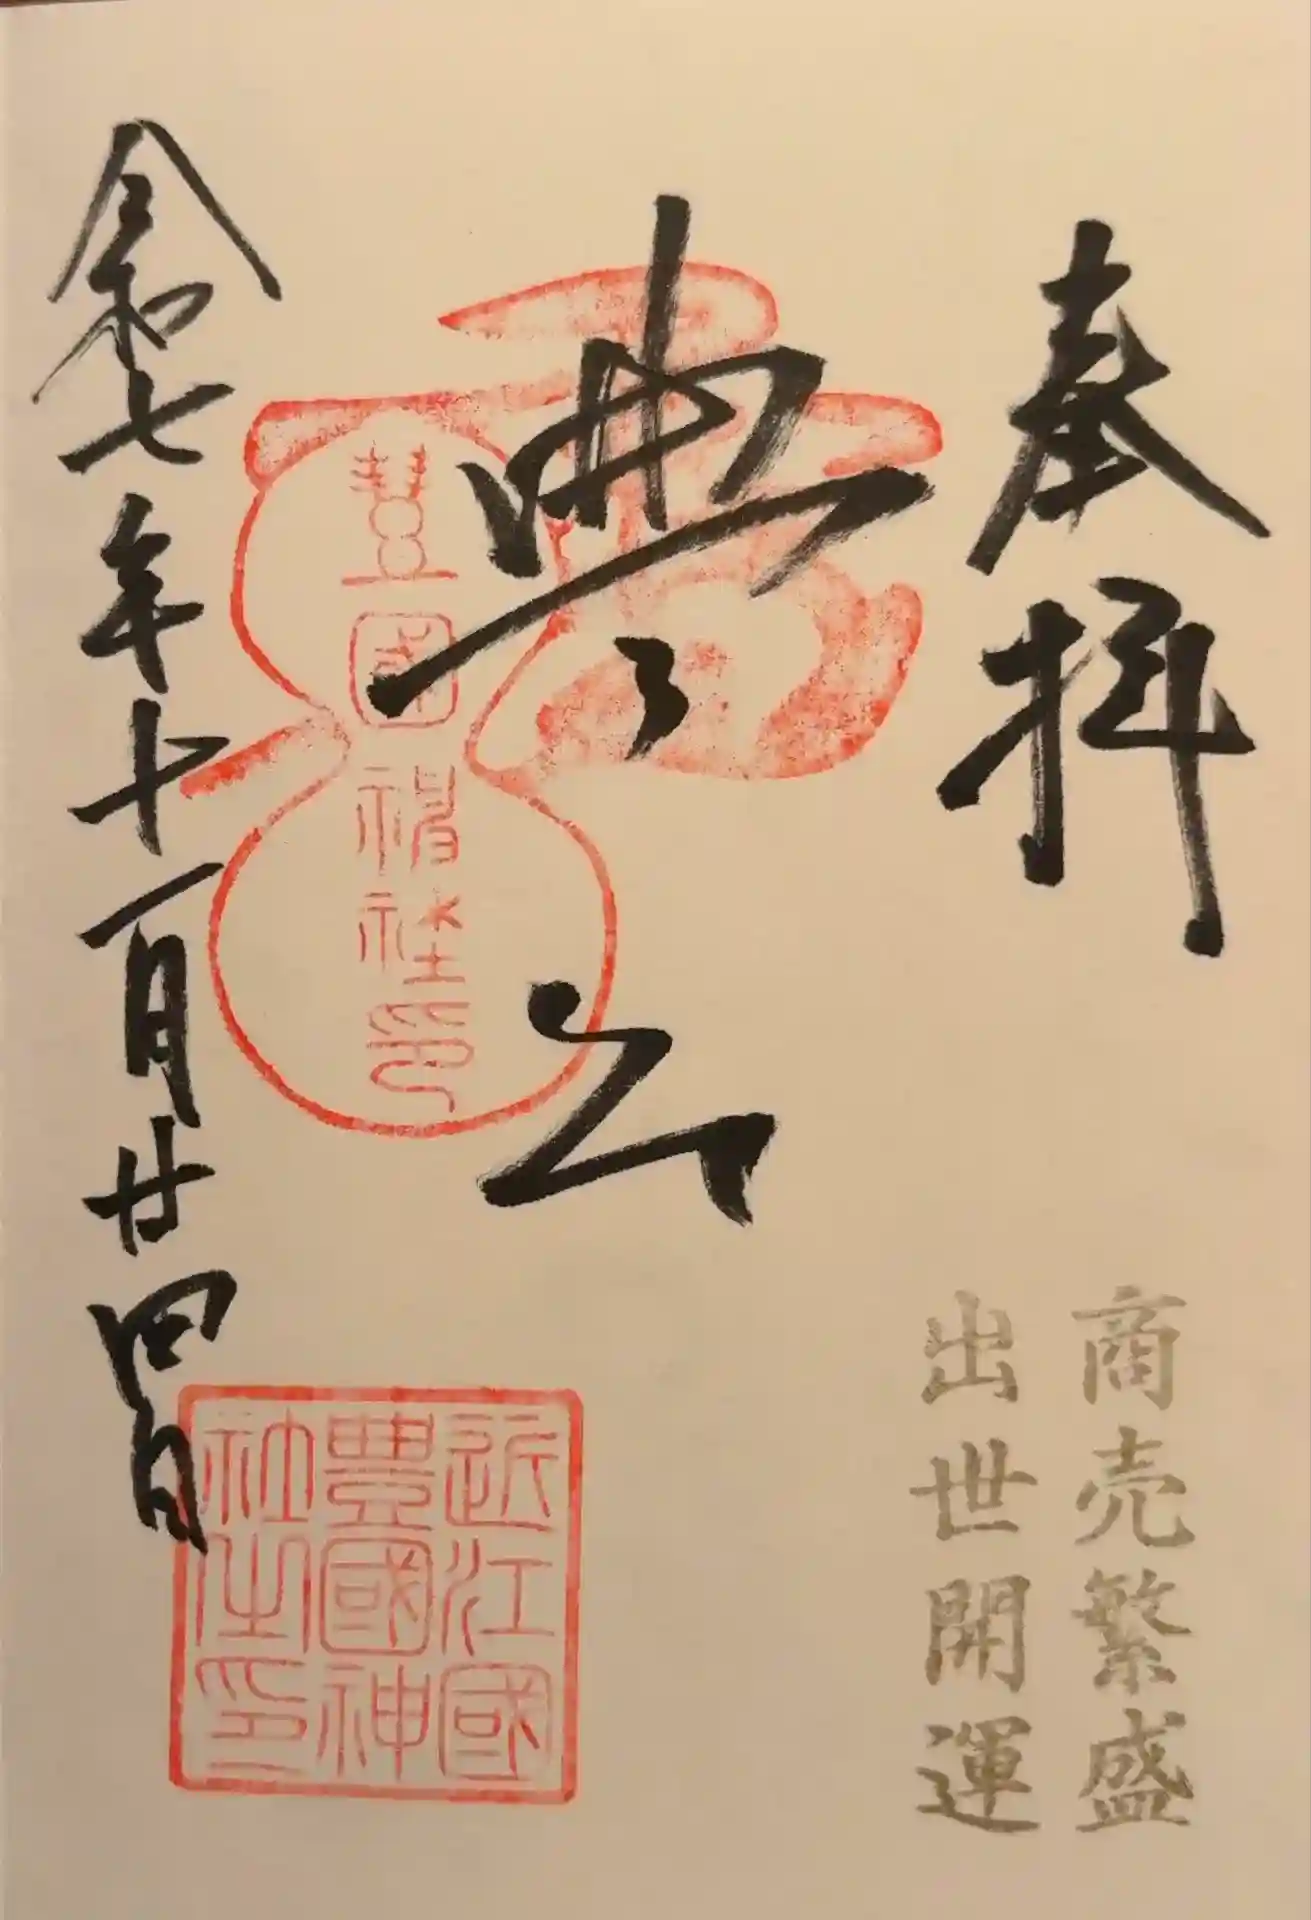 奉拝
商売繁盛
出世開運
豊公
豊國神社印
令和七年十一月廿四日
近江國
豊國神
社之印